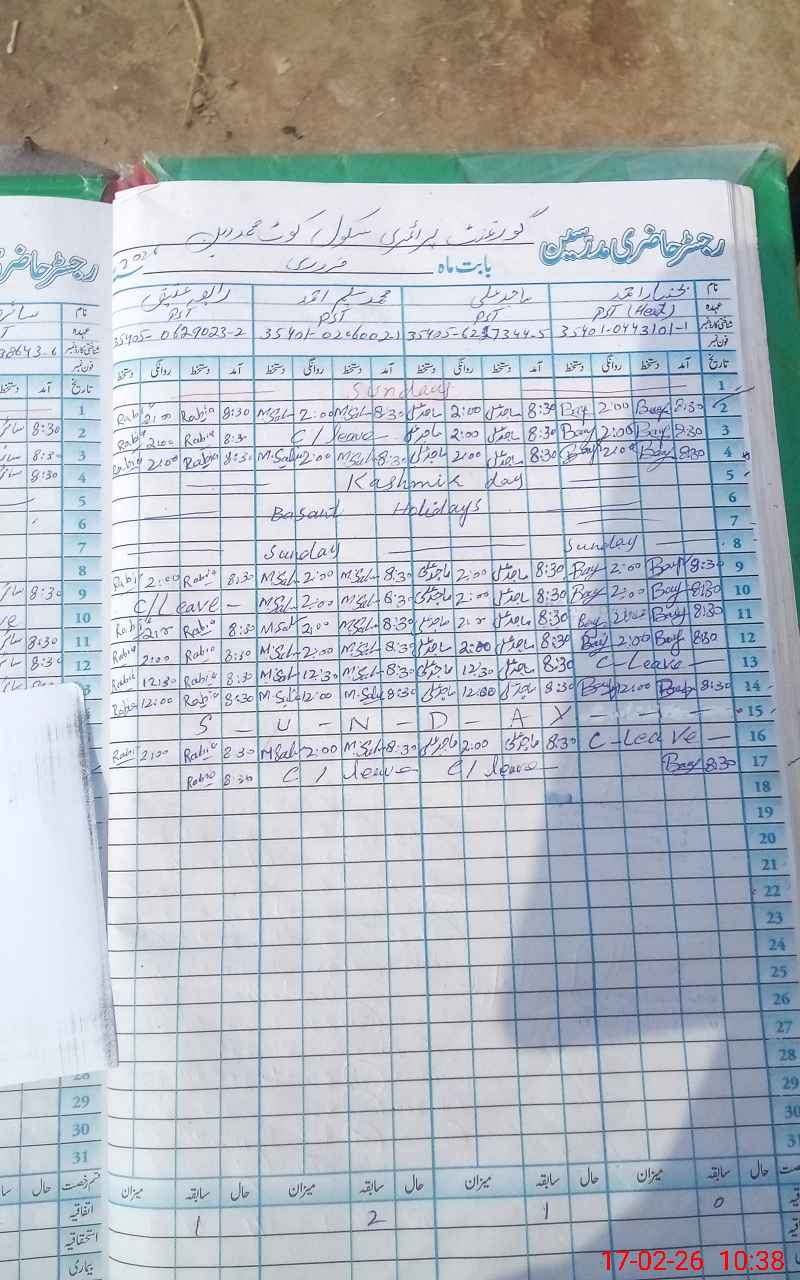 رجسٹر حاضری مدرسین گورنمنٹ پرائمری سکول کوٹ محمد دین
بابت ماہ فروری 2026
نام بختیار احمد ساجد علی محمد سلیم احمد رابعہ عتیق
عہدہ PST (Head) PST PST PST
شناختی کارڈ نمبر 35401-0443101-1 35405-6227344-5 35401-0246002 35405-0629023-2
فون نمبر
تاریخ آمد دستخط روانگی دستخط آمد دستخط روانگی دستخط آمد دستخط روانگی دستخط آمد دستخط روانگی دستخط
1 Sunday
2 8:30 2:00 8:30 ساجد علی 2:00 ساجد علی 8:30 M.Sal 2:00 M.Sal 8:30 Rabia 2:00 Rabia
3 8:30 2:00 8:30 ساجد علی 2:00 ساجد علی C/leave 8:30 Rabia 2:00 Rabia
4 8:30 2:00 8:30 ساجد علی 2:00 ساجد علی 8:30 M.Sal 2:00 M.Sal 8:30 Rabia 2:00 Rabia
5 Kashmir day
6 Basant Holidays
7
8 Sunday Sunday
9 8:30 2:00 8:30 ساجد علی 2:00 ساجد علی 8:30 M.Sal 2:00 M.Sal 8:30 Rabia 2:00 Rabia
10 8:30 2:00 8:30 ساجد علی 2:00 ساجد علی 8:30 M.Sal 2:00 M.Sal C/Leave
11 8:30 2:00 8:30 ساجد علی ساجد علی 8:30 M.Sal 2:00 M.Sal 8:30 Rabia Rabia
12 8:30 2:00 8:30 ساجد علی 2:00 ساجد علی 8:30 M.Sal 2:00 M.Sal 8:30 Rabia 2:00 Rabia
13 C-Leave 8:30 ساجد علی 12:30 ساجد علی 8:30 M.Sal 12:30 M.Sal 8:30 Rabia 12:30 Rabia
14 8:30 12:00 8:30 ساجد علی 12:00 ساجد علی 8:30 M.Sal 12:00 M.Sal 8:30 Rabia 12:00 Rabia
15 S - U - N - D - A Y
16 C-Leave 8:30 ساجد علی 2:00 ساجد علی 8:30 M.Sal 2:00 M.Sal 8:30 Rabia 2:00 Rabia
17 8:30 C/leave C/leave 8:30 Rabia
18
19
20
21
22
23
24
25
26
27
28
29
30
31
حال سابقہ میزان حال سابقہ میزان حال سابقہ میزان حال سابقہ میزان
0 1 2 1
رجسٹر حاضری
نام
عہدہ
شناختی کارڈ نمبر 98643-6
فون نمبر
تاریخ آمد دستخط
1
2 8:30
3 8:30
4 8:30
5
6
7
8
9 8:30
10
11 8:30
12 8:30
28
29
30
31
قسم رخصت حال
اتفاقیہ
استحقاقیہ
بیماری
17-02-26 10:38